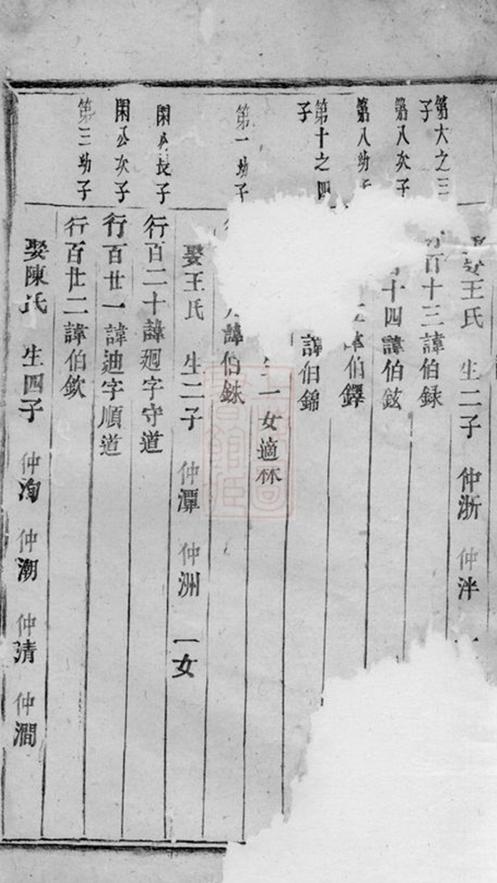 娶王氏 生二子 仲浙 仲泮 一
第六之三子
百十三諱伯録
第八次子
十四諱伯鉉
第八幼子
伯鐸
第十之四子
諱伯錦
一女適林
第一幼子
諱伯銇
娶王氏 生二子 仲潭 仲洲 一女
閑公長子
行百二十諱廻字守道
閑公次子
行百廿一諱迪字順道
第三幼子
行百廿二諱伯欽
娶陳氏 生四子 仲洵 仲潮 仲清 仲澗